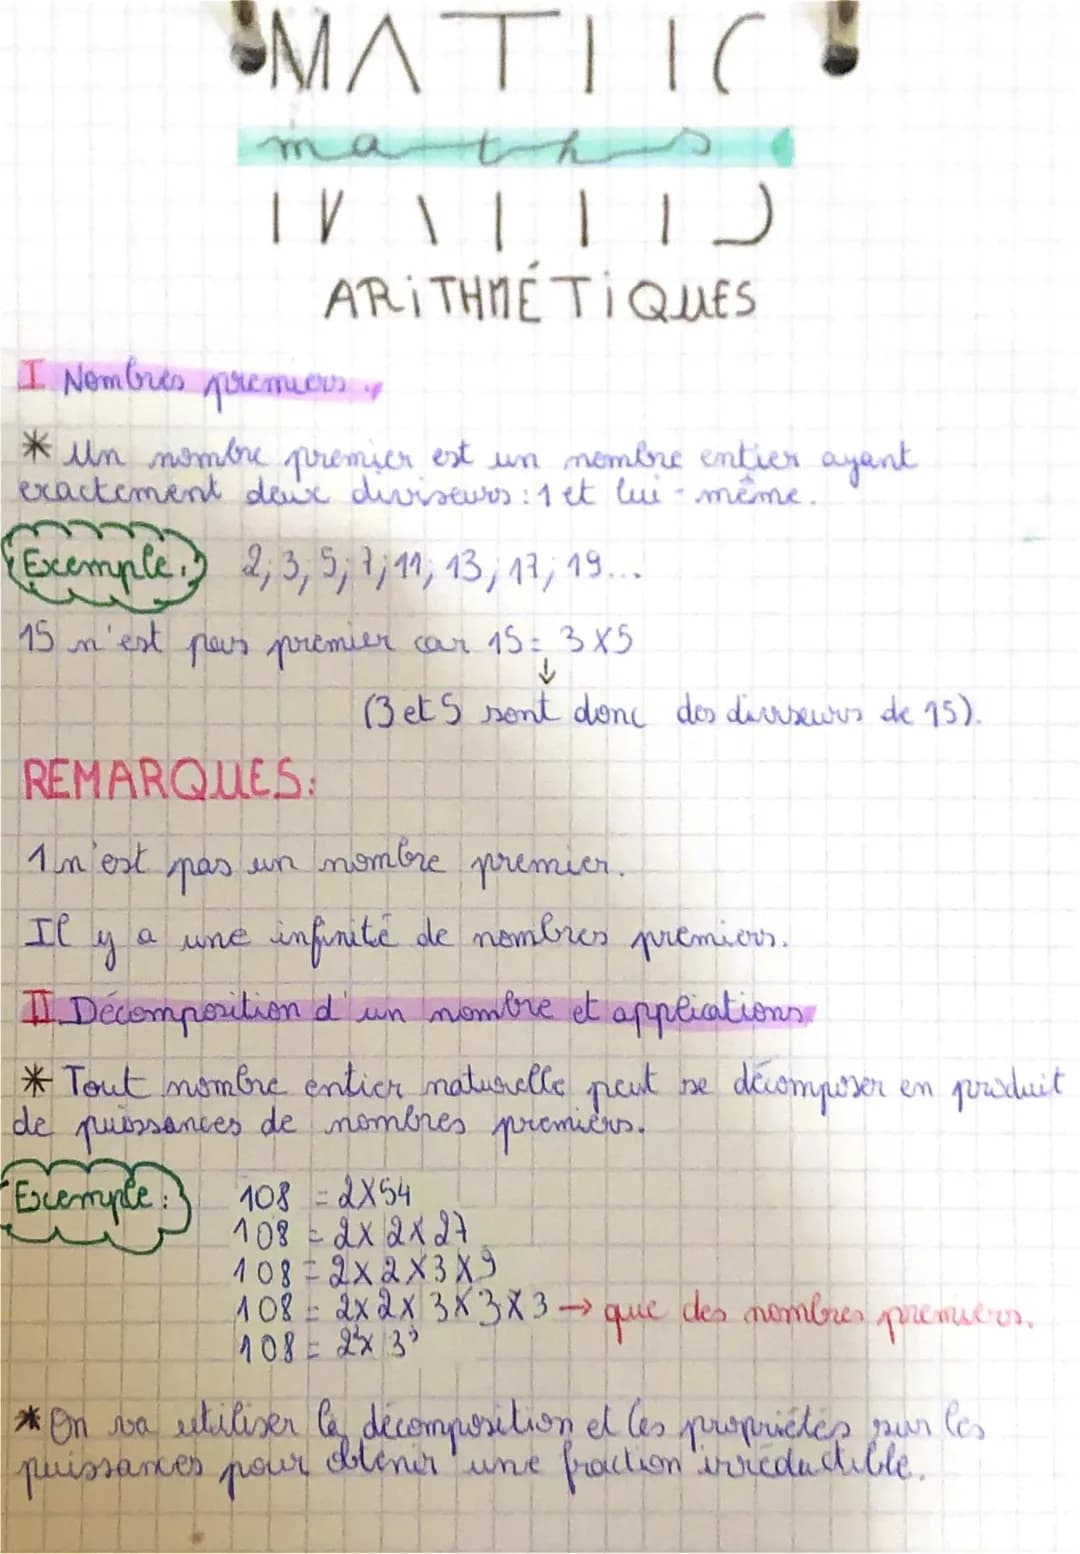 maths
ARITHMÉTIQUES
I Nombres premiers.
* Un nombre premier est un nombre entier ayant
exactement deux diviseurs : 1 et lui-même.
Exemple : 2; 3; 5; 7; 11; 13; 17; 19...
15 n'est pas premier car 15 = 3 x 5
↓
(3 et 5 sont donc des diviseurs de 15).
REMARQUES:
1 n'est pas un nombre premier.
Il y a une infinité de nombres premiers.
II Décomposition d'un nombre et applications
* Tout nombre entier naturelle peut se décomposer en produit
de puissances de nombres premiers.
Exemple : 108 = 2x54
108 = 2x 2x 27
108 = 2x 2x3x9
108 = 2x2x 3x3x3 → que des nombres premiers.
108 = 2²x 3³
* On va utiliser la décomposition et les propriétés sur les
puissances pour obtenir une fraction irréductible.